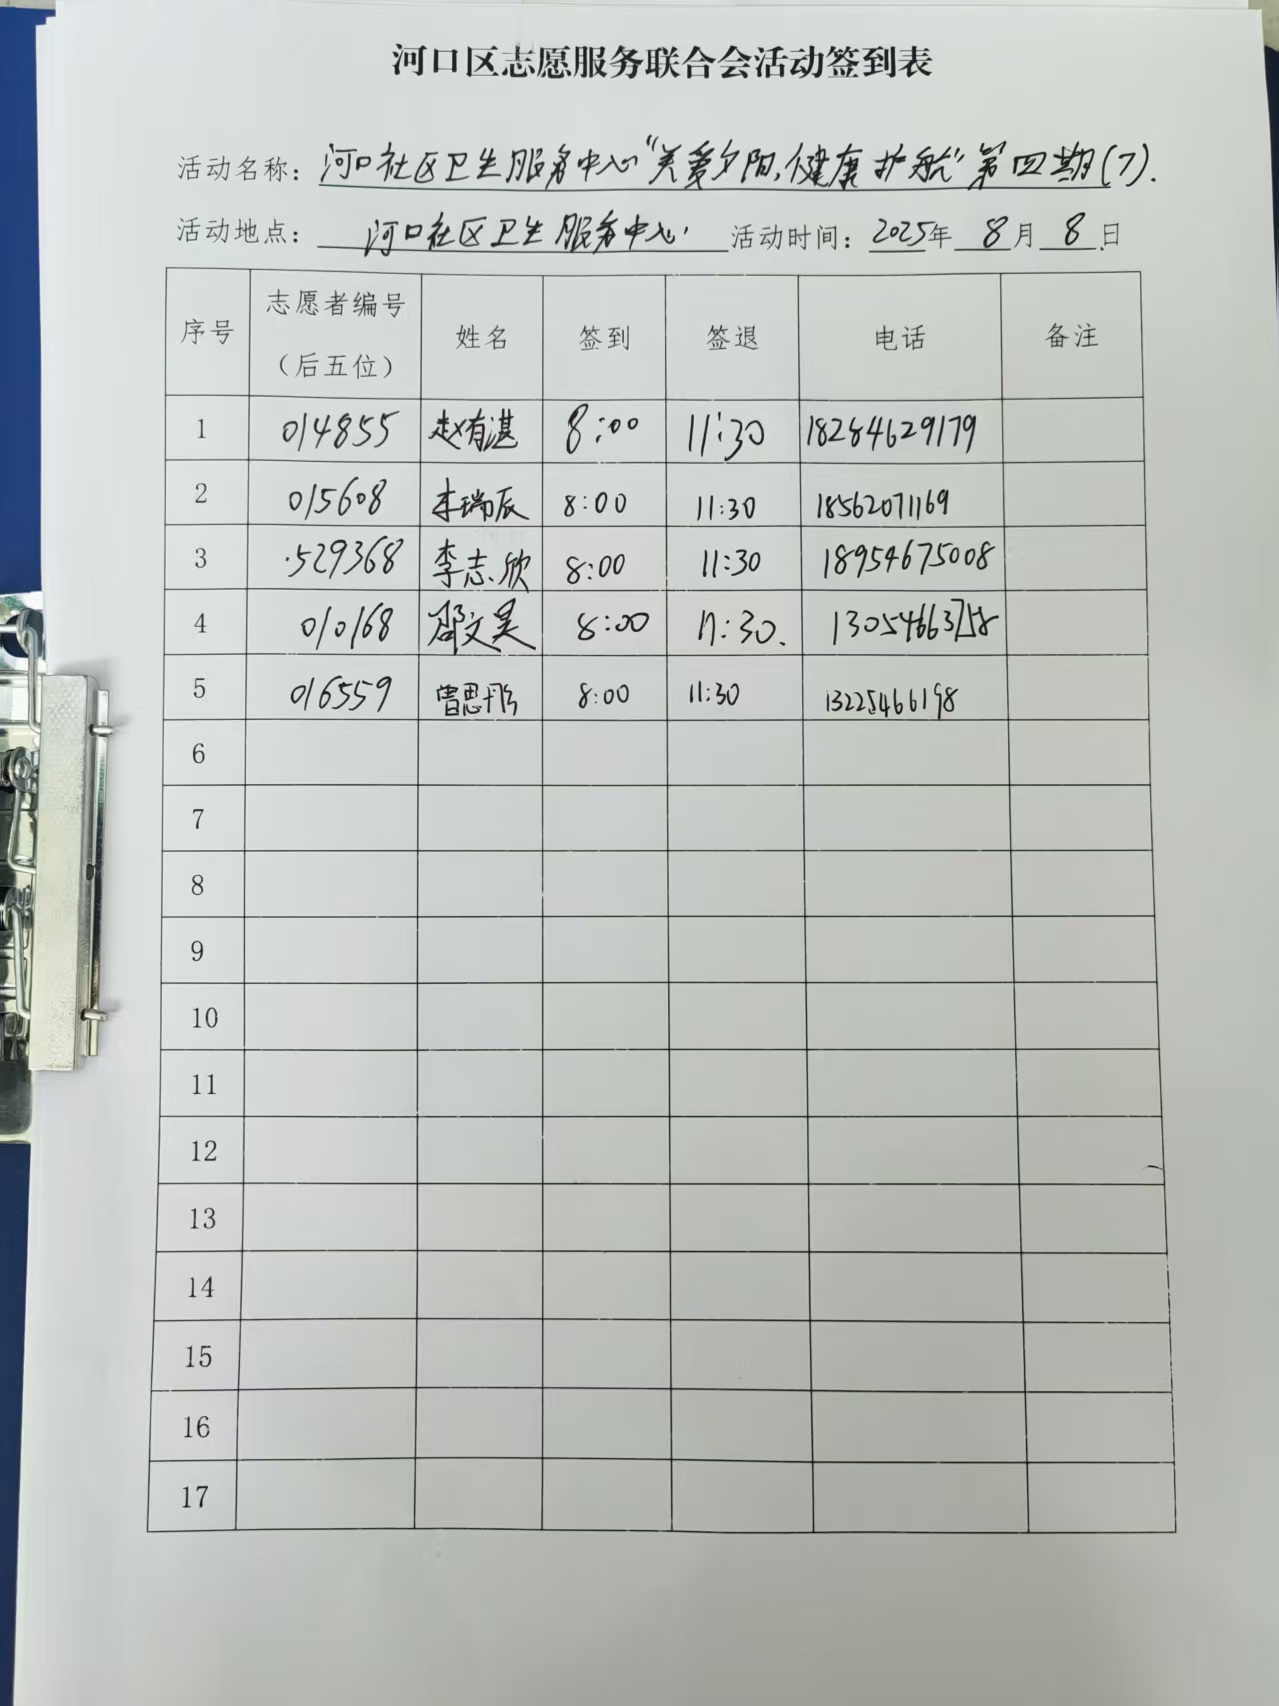 河口区志愿服务联合会活动签到表
活动名称：河口社区卫生服务中心“关爱夕阳,健康护航”第四期(7).
活动地点：河口社区卫生服务中心 活动时间：2025年 8月 8日
序号 志愿者编号（后五位） 姓名 签到 签退 电话 备注
1 014855 赵有湛 8:00 11:30 18284629179
2 015608 李瑞辰 8:00 11:30 18562071169
3 .529368 李志欣 8:00 11:30 18954675008
4 010168 文昊 8:00 11:30. 13054663758
5 016559 曾思彤 8:00 11:30 13225466198
6
7
8
9
10
11
12
13
14
15
16
17